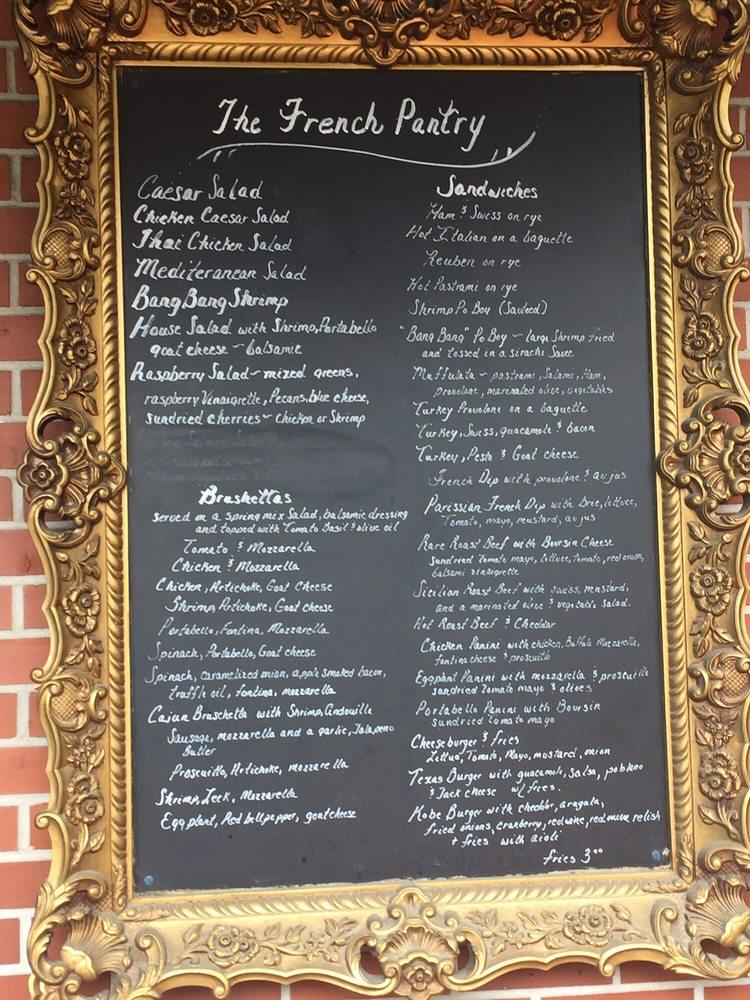 The French Pantry
Caesar Salad
Chicken Caesar Salad
Thai Chicken Salad
Mediteranean Salad
Bang Bang Shrimp
House Salad with Shrimp, Portabello
goat cheese ~ balsamic
Raspberry Salad ~ mixed greens,
raspberry Vinaigrette, Pecans, blue cheese,
sundried cherries ~ Chicken or Shrimp
Brushettas
served on a spring mix Salad, balsamic dressing
and topped with Tomato Basil & olive oil
Tomato & Mozzarella
Chicken & Mozzarella
Chicken, Artichoke, Goat Cheese
Shrimp, Artichoke, Goat cheese
Portabello, Fontina, Mozzarella
Spinach, Portabello, Goat cheese
Spinach, caramelized onion, apple smoked bacon,
truffle oil, fontina, mozzarella
Cajun Bruschetta with Shrimp, Andouille
Sausage, mozzarella and a garlic, Jalapeno
Butter
Proscuitto, Artichoke, mozzarella
Shrimp, Leek, Mozzarella
Eggplant, Red bellpepper, goat cheese
Sandwiches
Ham & Swiss on rye
Hot Italian on a baguette
Reuben on rye
Hot Pastrami on rye
Shrimp Po Boy (Sauteed)
"Bang Bang" Po Boy ~ large Shrimp fried
and tossed in a sirachi Sauce
Muffulata ~ pastrami, Salami, Ham,
provolone, marinated olive, vegetables
Turkey Provolone on a baguette
Turkey, Swiss, guacamole & bacon
Turkey, Pesto & Goat cheese
French Dip with provolone & au jus
Parissian French Dip with brie, lettuce,
Tomato, mayo, mustard, au jus
Rare Roast Beef with Boursin Cheese
sundried tomato mayo, lettuce, tomato, red onion,
balsamic vinaigrette
Sicilian Roast Beef with swiss, mustard,
and a marinated olive & vegetable salad.
Hot Roast Beef & Cheddar
Chicken Panini with chicken, Buffalo Mozzarella,
fontina cheese & proscuitto
Eggplant Panini with mozzarella & proscuitto
sundried Tomato mayo & olives
Portabello Panini with Boursin
sundried tomato mayo
Cheeseburger & fries
Lettuce, Tomato, Mayo, mustard, onion
Texas Burger with guacamole, Salsa, poblano
& Jack cheese w/ fries.
Kobe Burger with cheddar, arugala,
fried onions, cranberry, red wine, red onion relish
+ fries with aioli
fries 3.00